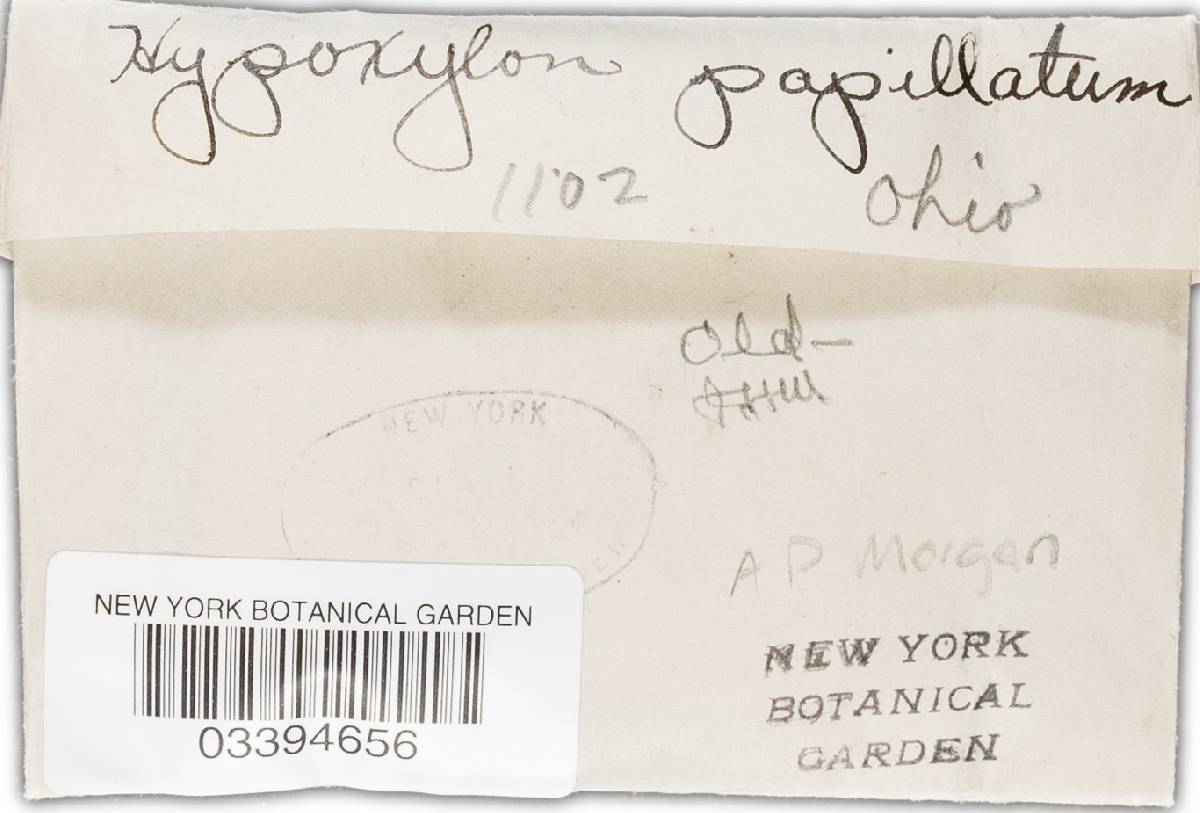 Hypoxylon papillatum
1102
Ohio
Old-
NEW YORK
A P Morgan
NEW YORK BOTANICAL GARDEN
03394656
NEW YORK
BOTANICAL
GARDEN